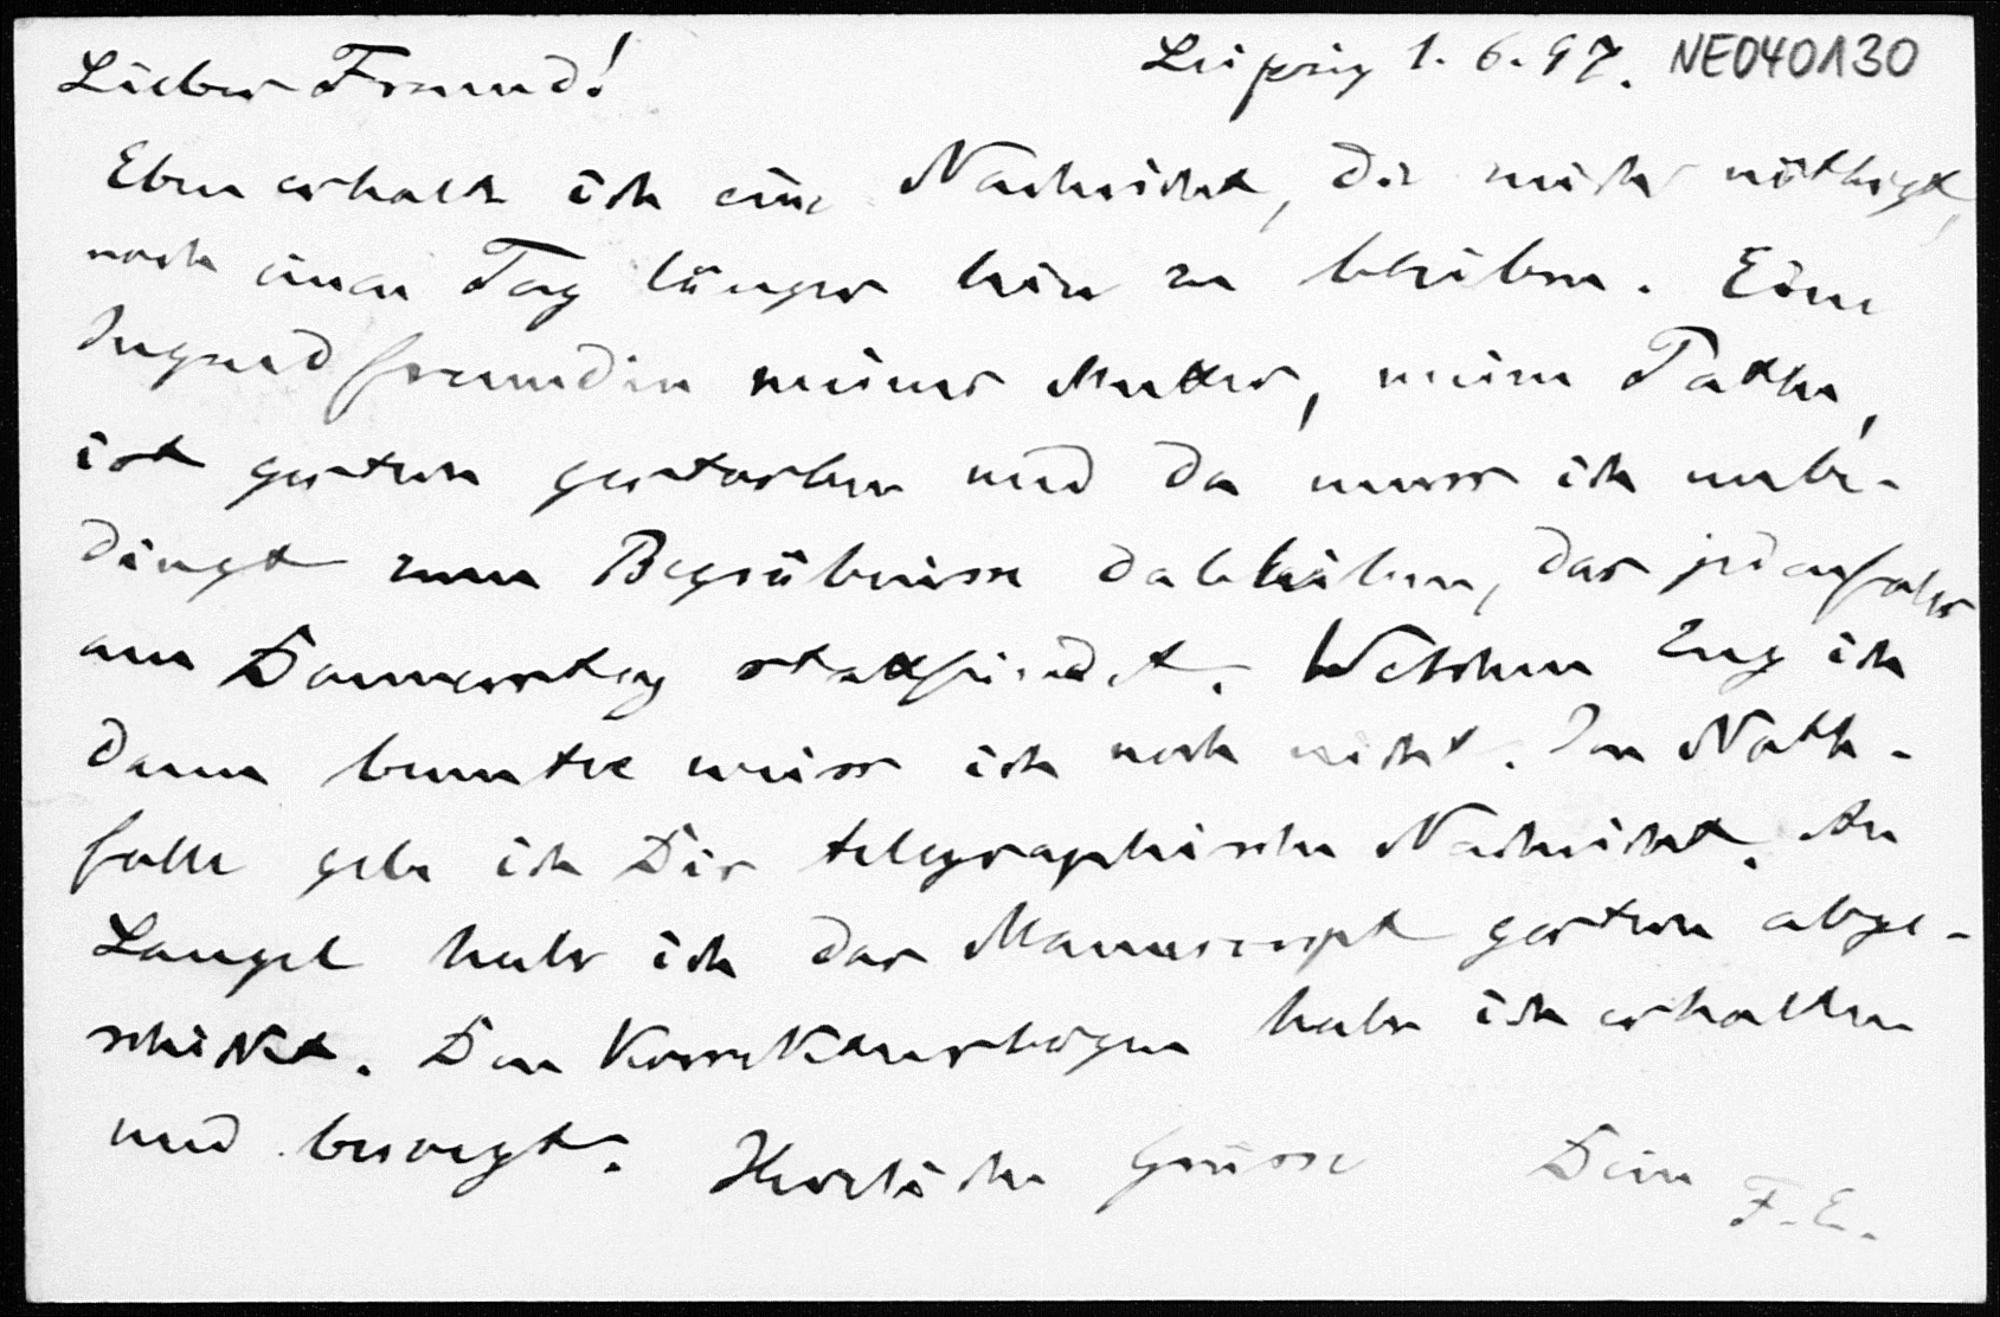 Lieber Freund! Leipzig 1. 6. 97. NE040130
Eben erhalte ich eine Nachricht, die mich nöthigt,
noch einen Tag länger hier zu bleiben. Eine
Jugendfreundin meiner Mutter, meine Pathe,
ist gestern gestorben und da muss ich unbe-
dingt zum Begräbnisse dableiben, das jedenfalls
am Donnerstag stattfindet. Welchen Zug ich
dann benutze weiss ich noch nicht. Im Noth-
falle gebe ich Dir telegraphische Nachricht. An
Laugel habe ich das Manuscript gestern abge-
schickt. Den Korrekturbogen habe ich erhalten
und besorgt. Herzliche Grüsse Dein
F. E.